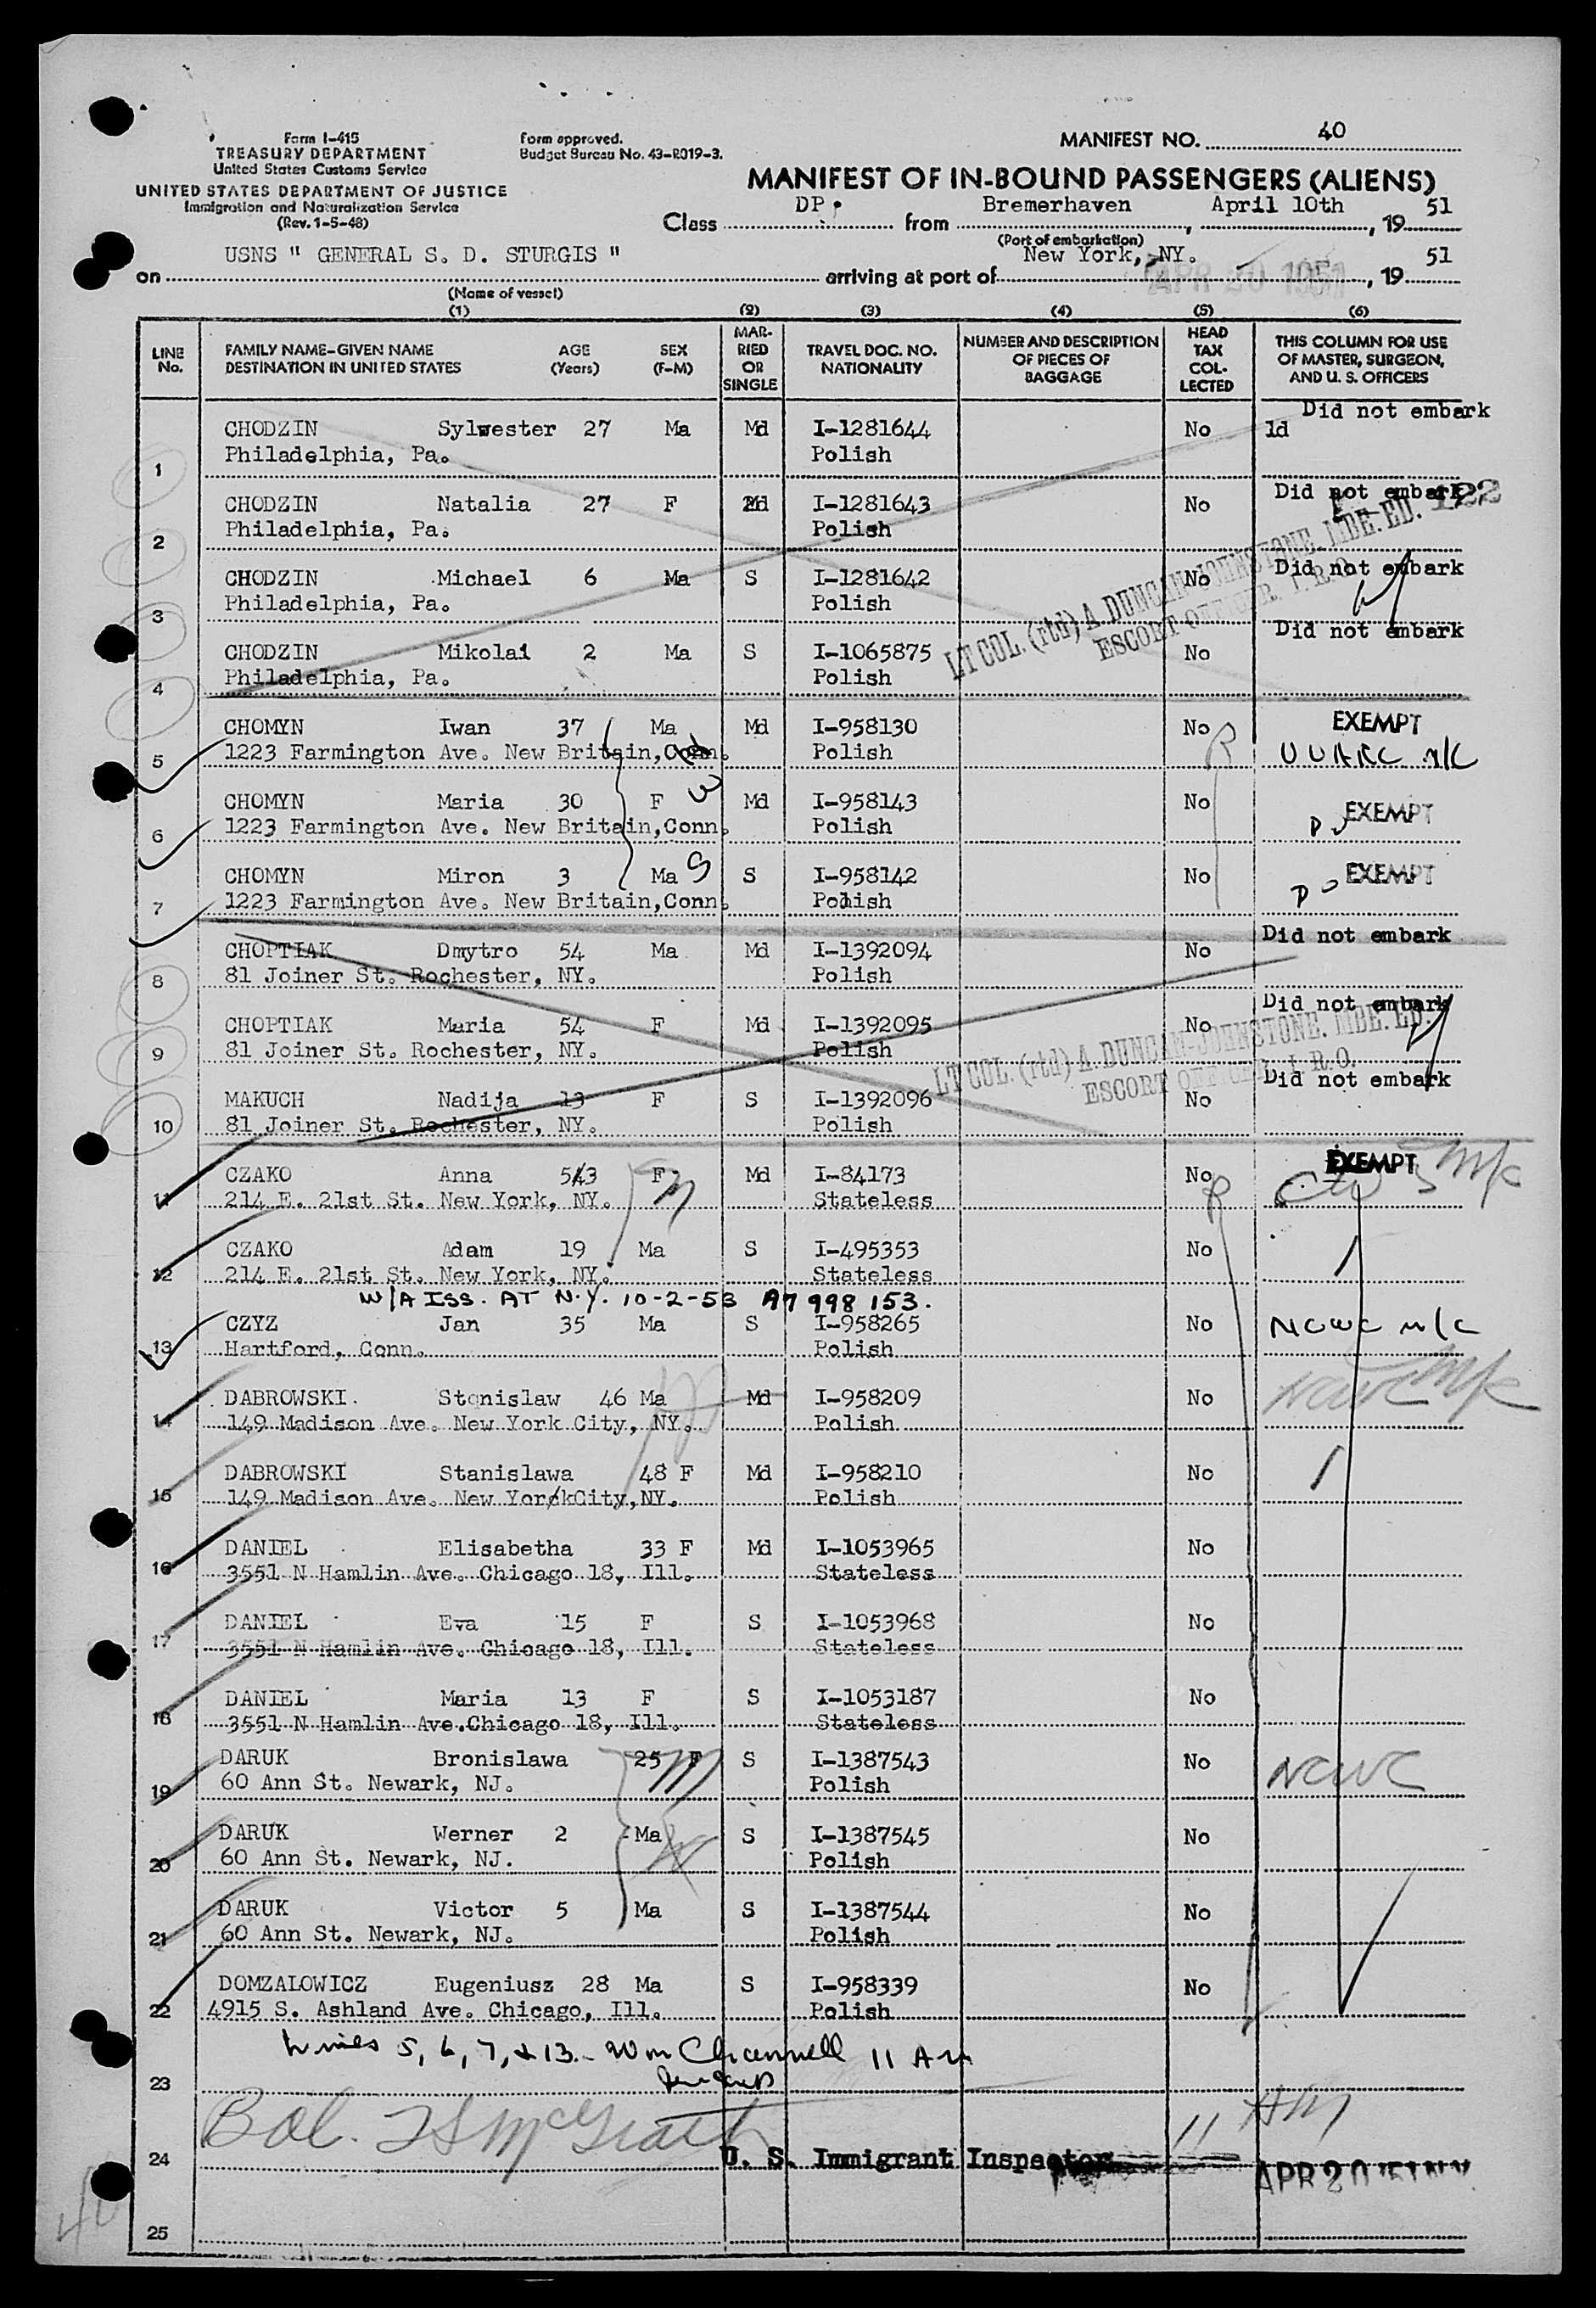 Form I-415
TREASURY DEPARTMENT
United States Customs Service
UNITED STATES DEPARTMENT OF JUSTICE
Immigration and Naturalization Service
(Rev. 1-5-48)
Form approved.
Budget Bureau No. 43-R019-3.
MANIFEST NO. 40
MANIFEST OF IN-BOUND PASSENGERS (ALIENS)
Class DP. from Bremerhaven, April 10th, 1951
(Port of embarkation)
on USNS " GENERAL S. D. STURGIS " arriving at port of New York, NY. APR 20 1951, 1951
(Name of vessel)
(1) (2) (3) (4) (5) (6)
LINE No.
FAMILY NAME-GIVEN NAME DESTINATION IN UNITED STATES
AGE (Years)
SEX (F-M)
MARRIED OR SINGLE
TRAVEL DOC. NO. NATIONALITY
NUMBER AND DESCRIPTION OF PIECES OF BAGGAGE
HEAD TAX COLLECTED
THIS COLUMN FOR USE OF MASTER, SURGEON, AND U. S. OFFICERS
Did not embark
CHODZIN Sylwester 27 Ma Md I-1281644 No ld
1 Philadelphia, Pa. Polish
Did not embark 122
CHODZIN Natalia 27 F Md I-1281643 No
2 Philadelphia, Pa. Polish
CHODZIN Michael 6 Ma S I-1281642 No Did not embark
3 Philadelphia, Pa. Polish
Did not embark
LT COL. (rtd) A. DUNCAN-JOHNSTONE. MBE. ED.
ESCORT OFFICER. I. R. O.
CHODZIN Mikolai 2 Ma S I-1065875 No
4 Philadelphia, Pa. Polish
CHOMYN Iwan 37 Ma Md I-958130 No EXEMPT
5 1223 Farmington Ave. New Britain, Conn. Polish UUARC n/c
CHOMYN Maria 30 F Md I-958143 No EXEMPT
6 1223 Farmington Ave. New Britain,Conn. Polish Do
CHOMYN Miron 3 Ma S I-958142 No EXEMPT
7 1223 Farmington Ave. New Britain,Conn. Polish Do
Did not embark
CHOPTIAK Dmytro 54 Ma Md I-1392094 No
8 81 Joiner St. Rochester, NY. Polish
Did not embark
CHOPTIAK Maria 54 F Md I-1392095 No
9 81 Joiner St. Rochester, NY. Polish
LT COL. (rtd) A. DUNCAN-JOHNSTONE. MBE. ED.
ESCORT OFFICER. I. R. O.
Did not embark
MAKUCH Nadija 13 F S I-1392096 No
10 81 Joiner St. Rochester, NY. Polish
EXEMPT
CZAKO Anna 5/43 F Md I-84173 No
11 214 E. 21st St. New York, NY. Stateless
CZAKO Adam 19 Ma S I-495353 No
12 214 E. 21st St. New York, NY. Stateless
W/A ISS. AT N.Y. 10-2-53 A7 998 153.
CZYZ Jan 35 Ma S I-958265 No NCWC n/c
13 Hartford, Conn. Polish
DABROWSKI. Stanislaw 46 Ma Md I-958209 No NCWC n/c
14 149 Madison Ave. New York City, NY. Polish
DABROWSKI Stanislawa 48 F Md I-958210 No
15 149 Madison Ave. New York City,NY. Polish
DANIEL Elisabetha 33 F Md I-1053965 No
16 3551 N Hamlin Ave. Chicago 18, Ill. Stateless
DANIEL Eva 15 F S I-1053968 No
17 3551 N Hamlin Ave. Chicago 18, Ill. Stateless
DANIEL Maria 13 F S I-1053187 No
18 3551 N Hamlin Ave.Chicago 18, Ill. Stateless
DARUK Bronislawa 25 F S I-1387543 No NCWC
19 60 Ann St. Newark, NJ. Polish
DARUK Werner 2 Ma S I-1387545 No
20 60 Ann St. Newark, NJ. Polish
DARUK Victor 5 Ma S I-1387544 No
21 60 Ann St. Newark, NJ. Polish
DOMZALOWICZ Eugeniusz 28 Ma S I-958339 No
22 4915 S. Ashland Ave. Chicago, Ill. Polish
Lines 5, 6, 7, & 13 - Wm Channell 11 AM
23
Bal. McGrath 11 AM
24 U. S. Immigrant Inspector APR 20 '51 N.Y.
25
40